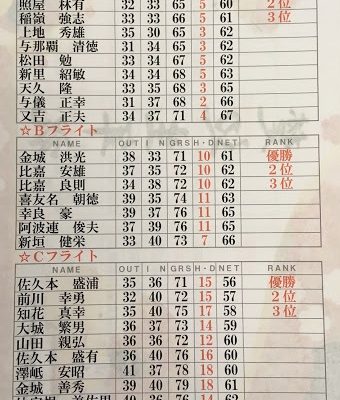 照屋 林有 32 33 65 5 60 2位
稲嶺 強志 33 33 66 5 61 3位
上地 秀雄 35 30 65 3 62
与那覇 清徳 31 34 65 3 62
松田 勉 33 34 67 5 62
新里 紹敏 34 34 68 5 63
天久 隆 31 37 68 5 63
与儀 正幸 31 37 68 2 66
又吉 正夫 34 37 71 4 67
☆Bフライト
NAME OUT IN GRS H・D NET RANK
金城 洪光 38 33 71 10 61 優勝
比嘉 安雄 37 35 72 10 62 2位
比嘉 良則 34 38 72 10 62 3位
喜友名 朝徳 39 35 74 11 63
幸良 豪 39 37 76 11 65
阿波連 俊夫 37 39 76 11 65
新垣 健栄 33 40 73 7 66
☆Cフライト
NAME OUT IN GRS H・D NET RANK
佐久本 盛浦 35 36 71 15 56 優勝
前川 幸勇 32 40 72 15 57 2位
知花 真幸 35 40 75 17 58 3位
大城 繁男 36 37 73 14 59
山田 親弘 36 36 72 12 60
佐久本 盛有 36 40 76 16 60
澤岻 安昭 41 37 78 18 60
金城 善秀 39 40 79 18 61